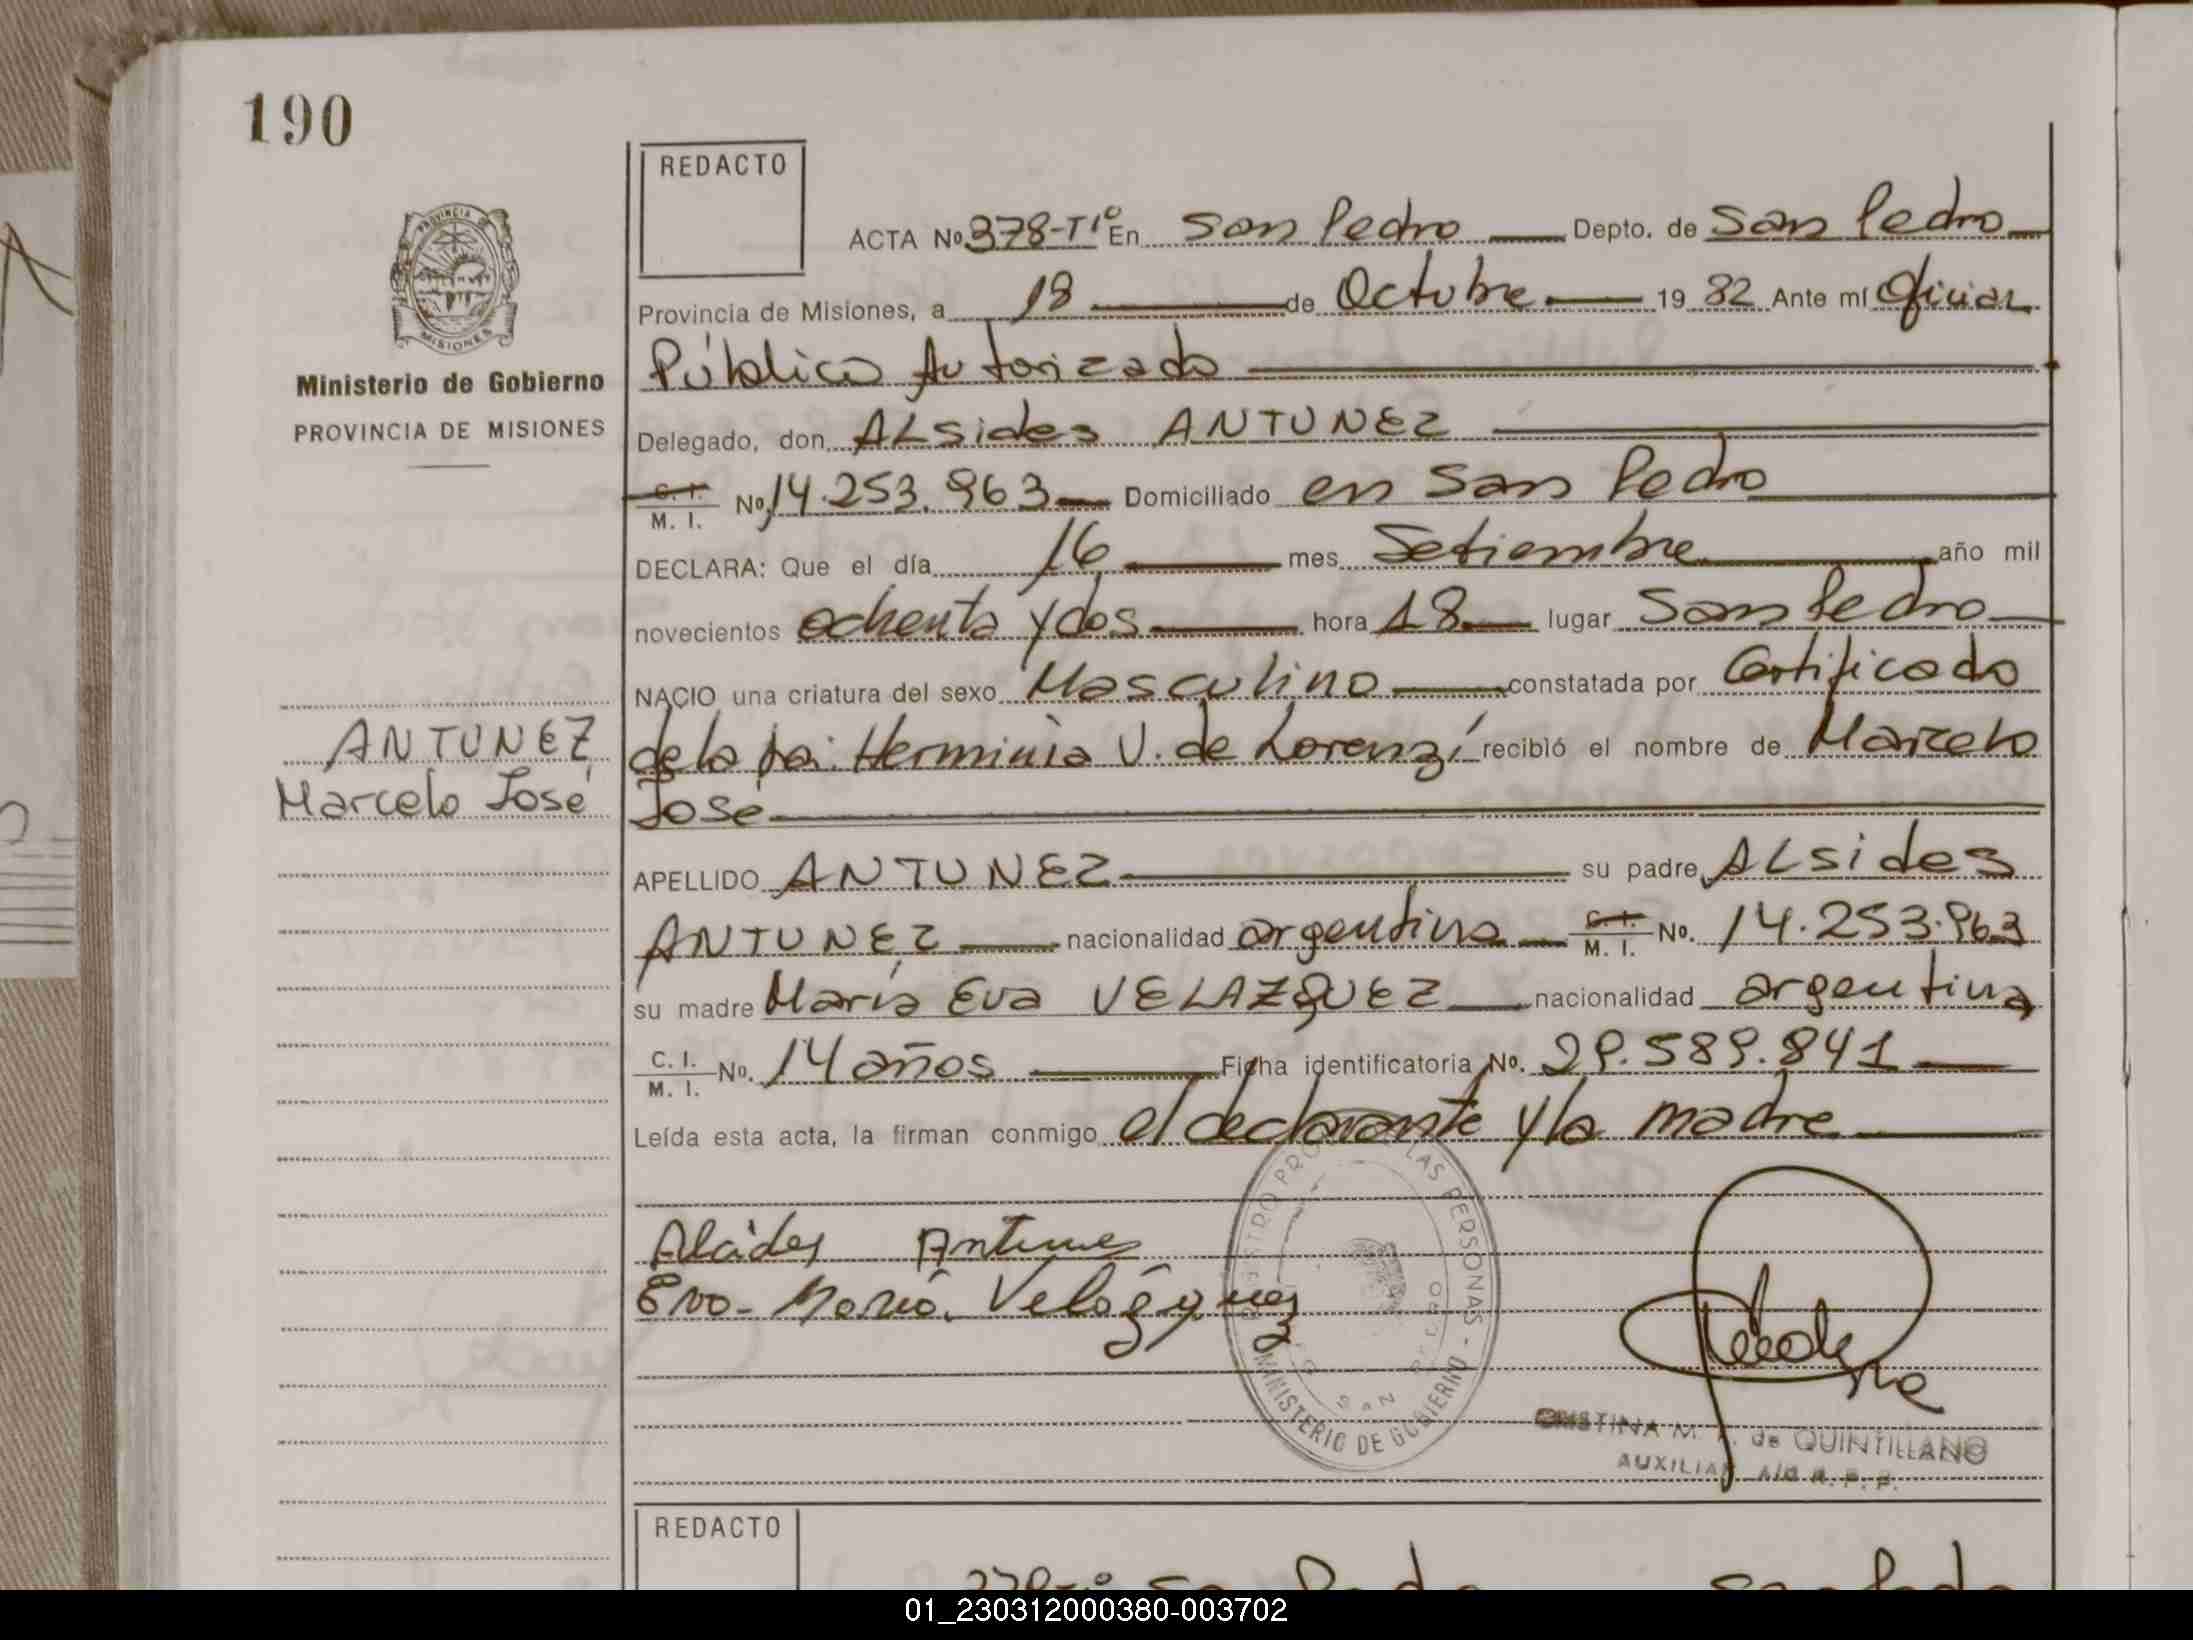 190
REDACTO
ACTA Nº 378-Tº1º En San Pedro Depto. de San Pedro
Provincia de Misiones, a 18 de Octubre 1982 Ante mí Oficial
Público Autorizado
PROVINCIA DE
MISIONES
Ministerio de Gobierno
PROVINCIA DE MISIONES
Delegado, don ALsides ANTUNEZ
C. I. M. I. Nº 14.253.963 Domiciliado en San Pedro
DECLARA: Que el día 16 mes Setiembre año mil
novecientos ochenta y dos hora 18 lugar San Pedro
NACIO una criatura del sexo Masculino constatada por Certificado
ANTUNEZ
Marcelo José
de la Herminia V. de Lorenzí recibió el nombre de Marcelo
José
APELLIDO ANTUNEZ su padre ALsides
ANTUNEZ nacionalidad argentina C. I. M. I. Nº. 14.253.963
su madre María Eva VELAZQUEZ nacionalidad argentina
C. I. M. I. Nº. 14 años Ficha identificatoria Nº. 29.589.841
Leída esta acta, la firman conmigo el declarante y la madre
Alcides Antunes
Eva María Velázquez
LAS PERSONAS - MINISTERIO DE GOBIERNO
SAN PEDRO
CRISTINA M. de QUINTILLANO
AUXILIAR A/C R. P. P.
REDACTO
01_230312000380-003702